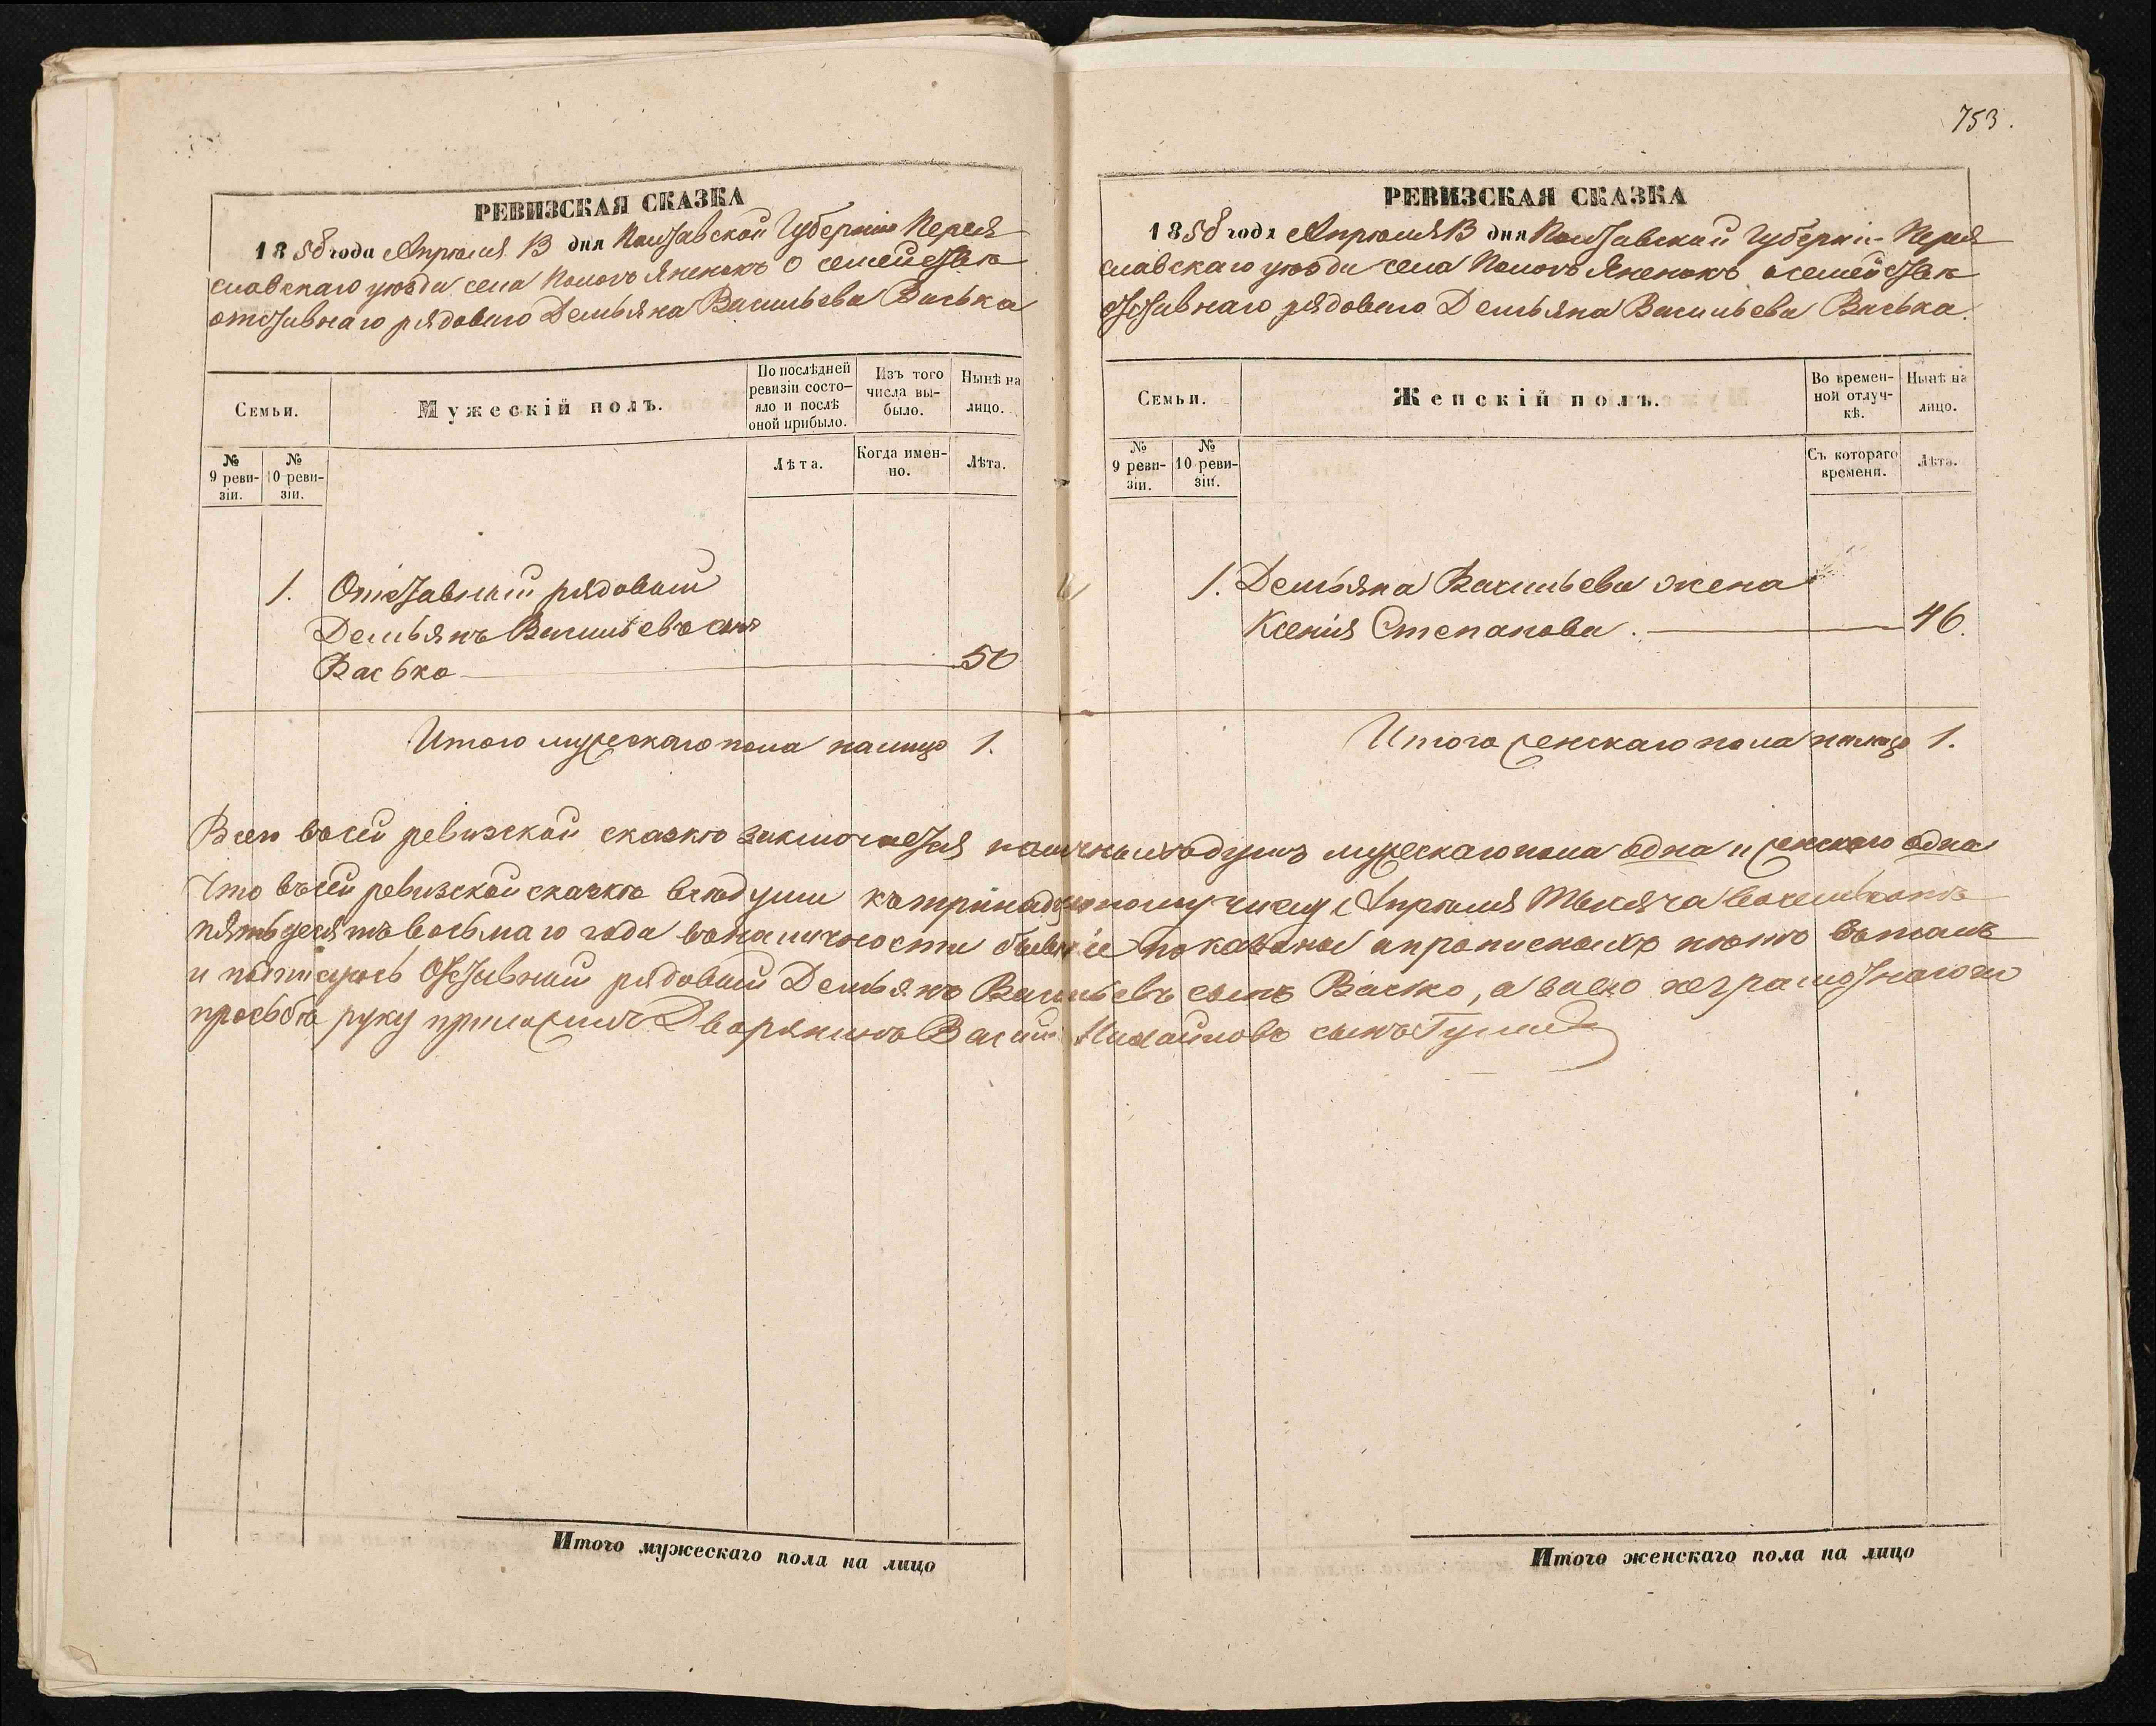 753.
РЕВИЗСКАЯ СКАЗКА
1858 года Апрѣля 13 дня Полтавской Губерніи Перея
славскаго уѣзда села Помокъ о семействѣ
отставнаго рядоваго Демьяна Васильева Васька
Семьи.
Мужескій полъ.
По послѣдней
ревизіи состо-
яло и послѣ
оной прибыло.
Изъ того
числа вы-
было.
Нынѣ на
лицо.
№
9 реви-
зіи.
№
10 реви-
зіи.
Лѣта.
Когда имен-
но.
Лѣта.
1. Отставный рядовый
Демьянъ Васильевъ сынъ
Васько 50
Итого мужескаго пола налицо 1.
РЕВИЗСКАЯ СКАЗКА
1858 года Апрѣля 13 дня Полтавской Губерніи Перея
славскаго уѣзда села о семействѣ
отставнаго рядоваго Демьяна Васильева Васька.
Семьи.
Женскій полъ.
Во времен-
ной отлуч-
кѣ.
Нынѣ на
лицо.
№
9 реви-
зіи.
№
10 реви-
зіи.
Съ котораго
времени.
Лѣта.
1. Демьяна Васильева жена
Ксенія Степанова. 46.
Итого женскаго пола налицо 1.
Всего въ сей ревизской сказкѣ заключается наличныхъ душъ мужескаго пола одна и женскаго одна
Что въ сей ревизской сказкѣ всѣ души къ тринадцатому числу Апрѣля тысяча восемьсотъ
пятьдесятъ восьмаго года въ наличности бывшіе показаны а прописныхъ нѣтъ въ томъ
и подпишусь Отставный рядовый Демьянъ Васильевъ сынъ Васько, а за его неграмотнаго по
просьбѣ руку приложилъ Дворянинъ Василій Михайловъ сынъ
Итого мужескаго пола на лицо
Итого женскаго пола на лицо